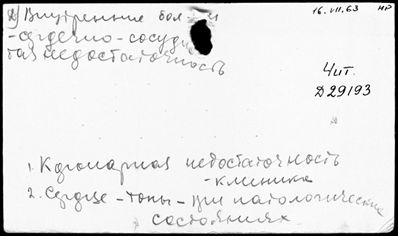 2) Внутренние бол
16.VII.63 НР
- сердечно - сосуди
тая недостаточность
Чит.
Д29193
1. Коронарная недостаточность
- клиника
2. Сердце - тоны - при патологических
состояниях.